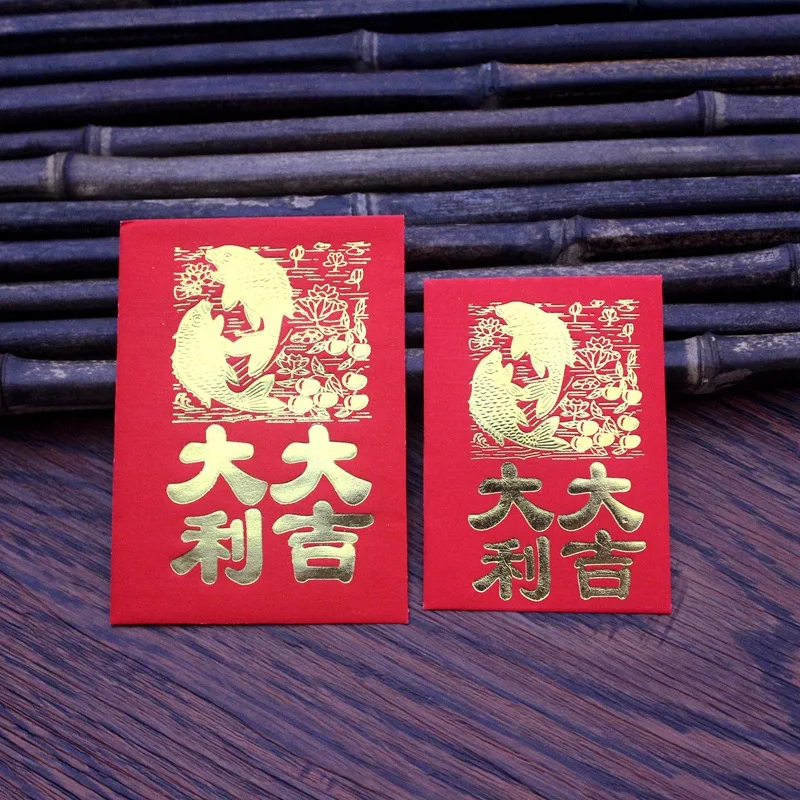 大吉
大利
大吉
大利